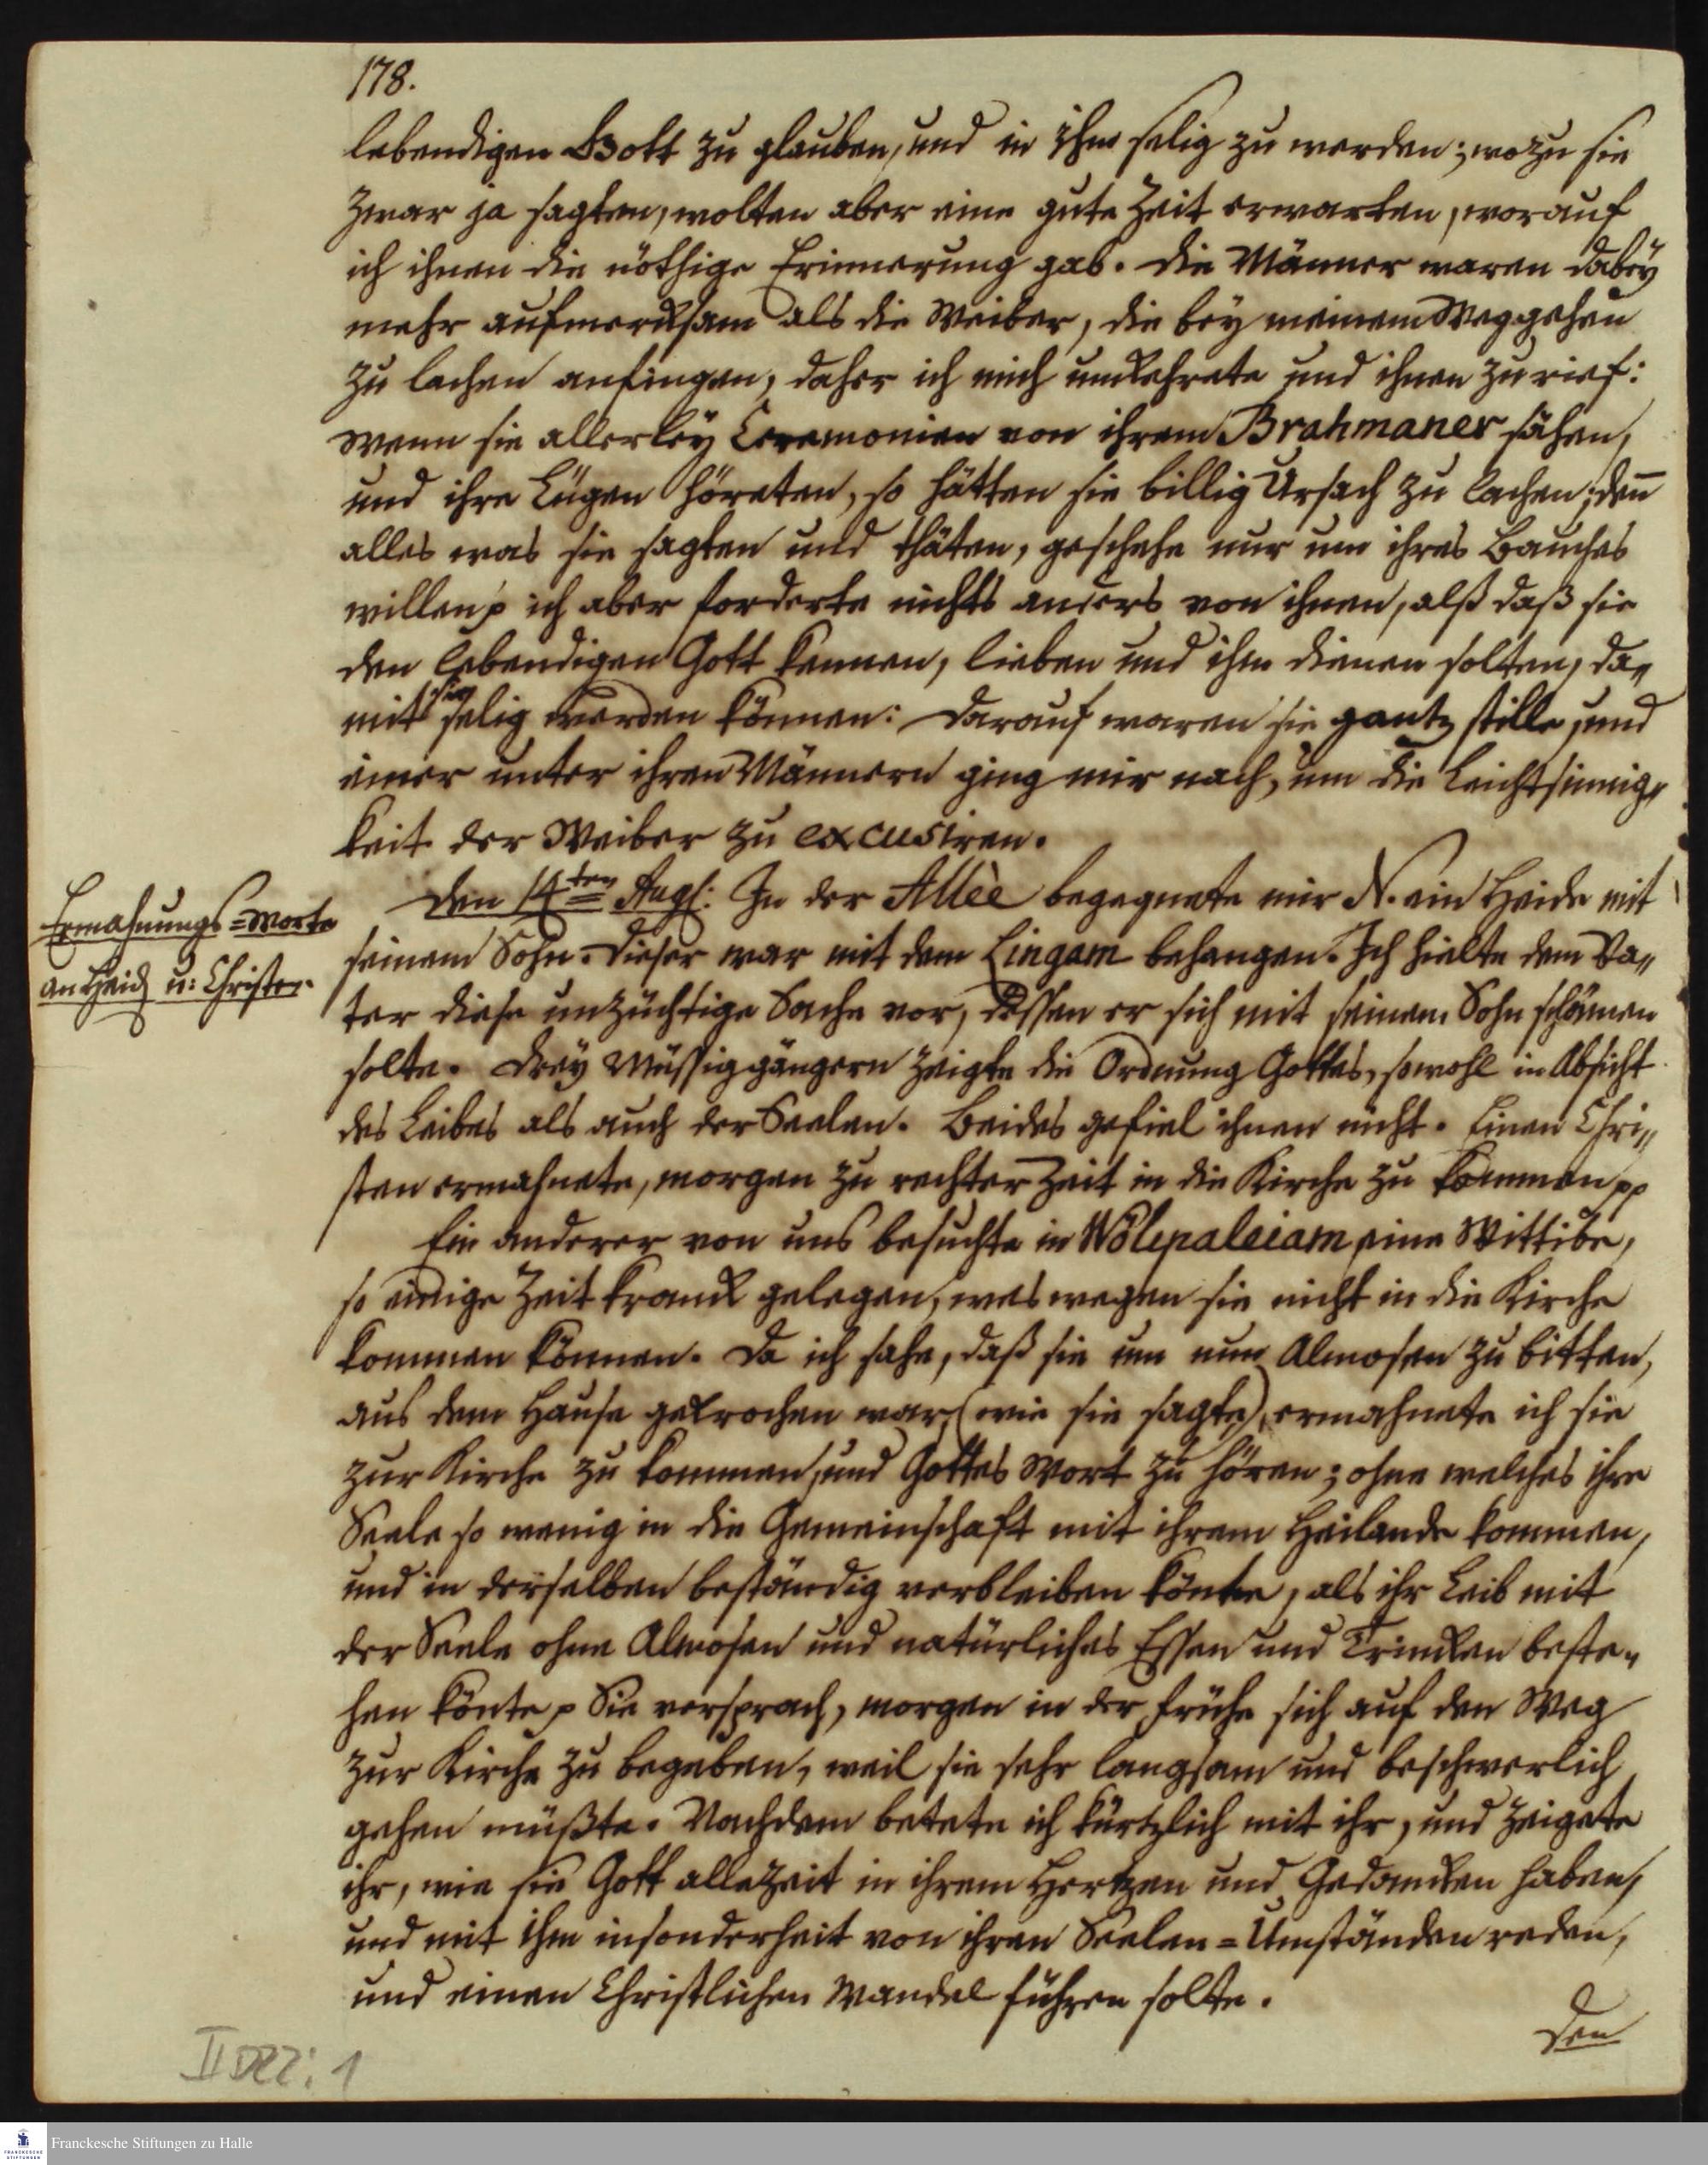 178.
lebendigen Gott zu glauben, und in Ihm selig zu werden; wozu sie
zwar ja sagten, wolten aber eine gute Zeit erwarten, worauf
ich ihnen die nöthige Erinnerung gab. Die Männer waren dabey
mehr aufmercksam als die Weiber, die bey meinem Weggehen
zu lachen anfingen, daher ich mich umkehrete und ihnen zurief:
Wenn sie allerley Ceremonien von ihrem Brahmaner sähen,
und ihre Lügen höreten, so hätten sie billig Ursach zu lachen; deñ
alles was sie sagten und thäten, geschehe nur um ihres Bauches
willen p ich aber forderte nichts anders von ihnen, alß daß sie
den lebendigen Gott kennen, lieben und ihm dienen solten, da„
mit sie selig werden können: Darauf waren sie gantz stille, und
einer unter ihren Männern ging mir nach, um die Leichtsinnig„
keit der Weiber zu excusiren.
Ermahnungs=Worte
an Heid u: Christen.
Den 14ten Aug: In der Allèe begegnete mir N. ein Heide mit
seinem Sohn. Dieser war mit dem Lingam behangen. Ich hielte dem Va„
ter diese unzüchtige Sache vor, dessen er sich mit seinem Sohn schämen
solte. Drey Müssiggängern zeigte die Ordnung Gottes, sowohl in Absicht
des Leibes als auch der Seelen. Beides gefiel ihnen nicht. Einen Chri„
sten ermahnete, morgen zu rechter Zeit in die Kirche zu kommen pp
Ein anderer von uns besuchte in Wölipaleiam eine Wittibe,
so einige Zeit kranck gelegen, weswegen sie nicht in die Kirche
kommen können. Da ich sahe, daß sie um nun Almosen zu bitten,
aus dem Hause gekrochen war, (wie sie sagte), ermahnete ich sie
zur Kirche zu kommen, und Gottes Wort zu hören; ohne welches ihre
Seele so wenig in die Gemeinschaft mit ihrem Heilande kommen,
und in derselben beständig verbleiben könte, als ihr Leib mit
der Seele ohne Almosen und natürliches Essen und Trincken beste„
hen könte p Sie versprach, morgen in der frühe sich auf den Weg
zur Kirche zu begeben, weil sie sehr langsam und beschwerlich
gehen müßte. Nachdem betete ich kürtzlich mit ihr, und zeigete
ihr, wie sie Gott allezeit in ihrem Hertzen und Gedancken haben,
und mit Ihm insonderheit von ihren Seelen=Umständen reden,
und einen Christlichen Wandel führen solte.
Den
II D22: 1
FRANCKESCHE
STIFTUNGEN
Franckesche Stiftungen zu Halle